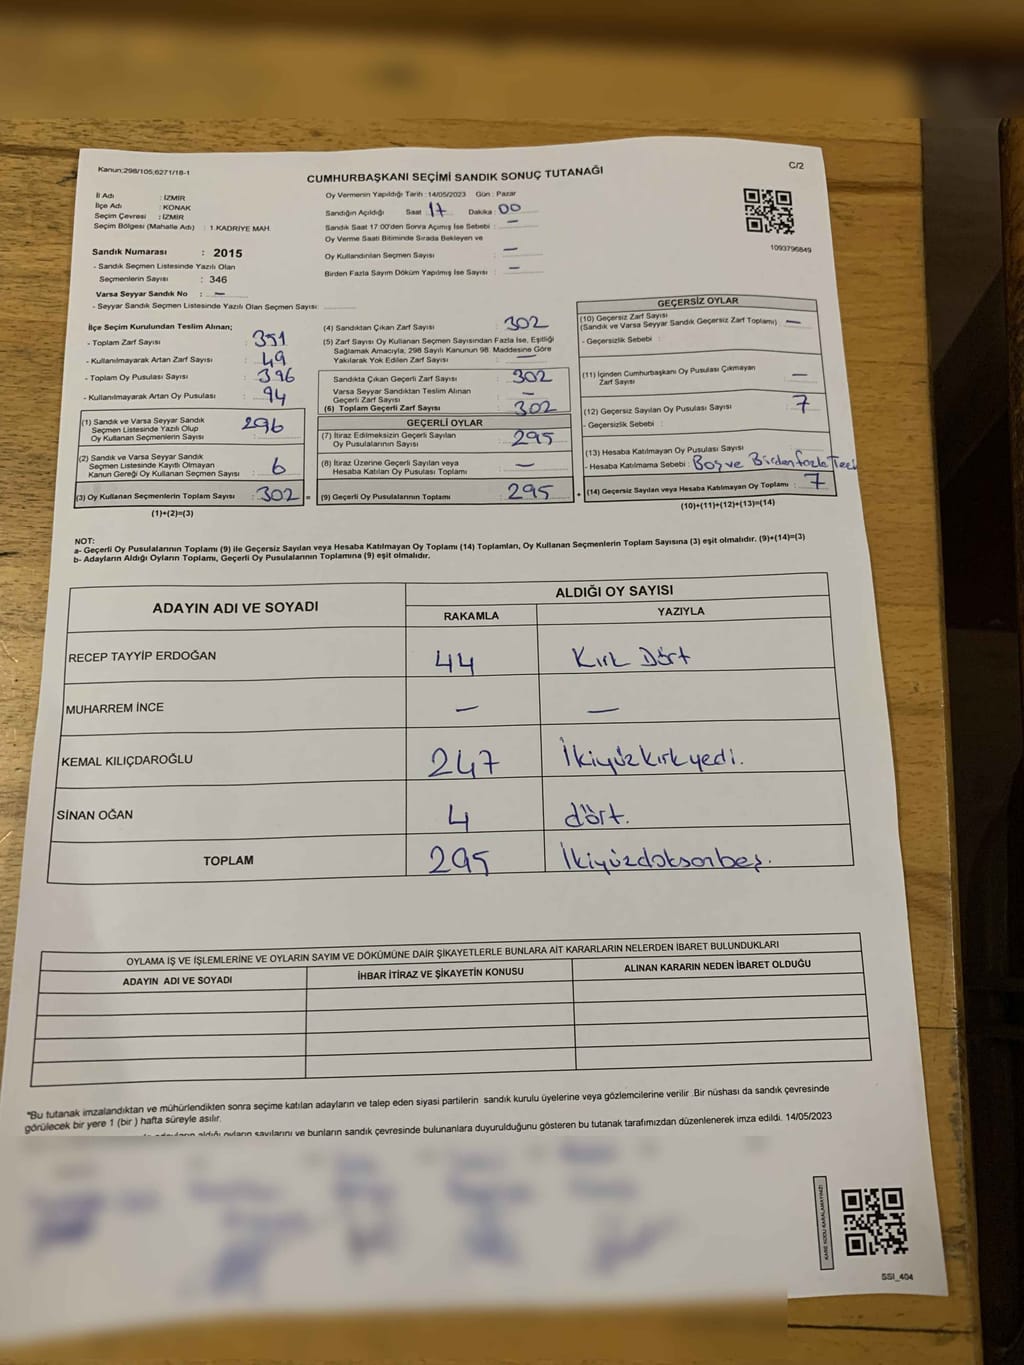 Kanun:298/105;6271/18-1
C/2
CUMHURBAŞKANI SEÇİMİ SANDIK SONUÇ TUTANAĞI
İl Adı : İZMİR
İlçe Adı : KONAK
Seçim Çevresi : İZMİR
Seçim Bölgesi (Mahalle Adı) : 1.KADRİYE MAH.
Oy Vermenin Yapıldığı Tarih : 14/05/2023 Gün : Pazar
Sandığın Açıldığı Saat : 17 Dakika : 00
Sandık Saat 17:00'den Sonra Açımış İse Sebebi : —
Oy Verme Saati Bitiminde Sırada Bekleyen ve
Oy Kullandırılan Seçmen Sayısı : —
Birden Fazla Sayım Döküm Yapılmış İse Sayısı : —
1093796849
Sandık Numarası : 2015
- Sandık Seçmen Listesinde Yazılı Olan
Seçmenlerin Sayısı : 346
Varsa Seyyar Sandık No : —
- Seyyar Sandık Seçmen Listesinde Yazılı Olan Seçmen Sayısı:
İlçe Seçim Kurulundan Teslim Alınan;
- Toplam Zarf Sayısı : 351
- Kullanılmayarak Artan Zarf Sayısı : 49
- Toplam Oy Pusulası Sayısı : 396
- Kullanılmayarak Artan Oy Pusulası : 94
(1) Sandık ve Varsa Seyyar Sandık
Seçmen Listesinde Yazılı Olup
Oy Kullanan Seçmenlerin Sayısı : 296
(2) Sandık ve Varsa Seyyar Sandık
Seçmen Listesinde Kayıtlı Olmayan
Kanun Gereği Oy Kullanan Seçmen Sayısı : 6
(3) Oy Kullanan Seçmenlerin Toplam Sayısı : 302 =
(1)+(2)=(3)
(4) Sandıktan Çıkan Zarf Sayısı : 302
(5) Zarf Sayısı Oy Kullanan Seçmen Sayısından Fazla İse, Eşitliği
Sağlamak Amacıyla, 298 Sayılı Kanunun 98. Maddesine Göre
Yakılarak Yok Edilen Zarf Sayısı : —
Sandıkta Çıkan Geçerli Zarf Sayısı : 302
Varsa Seyyar Sandıktan Teslim Alınan
Geçerli Zarf Sayısı : —
(6) Toplam Geçerli Zarf Sayısı : 302
GEÇERLİ OYLAR
(7) İtiraz Edilmeksizin Geçerli Sayılan
Oy Pusulalarının Sayısı : 295
(8) İtiraz Üzerine Geçerli Sayılan veya
Hesaba Katılan Oy Pusulası Toplamı : —
(9) Geçerli Oy Pusulalarının Toplamı : 295 +
GEÇERSİZ OYLAR
(10) Geçersiz Zarf Sayısı
(Sandık ve Varsa Seyyar Sandık Geçersiz Zarf Toplamı) : —
- Geçersizlik Sebebi :
(11) İçinden Cumhurbaşkanı Oy Pusulası Çıkmayan
Zarf Sayısı : —
(12) Geçersiz Sayılan Oy Pusulası Sayısı : 7
- Geçersizlik Sebebi :
(13) Hesaba Katılmayan Oy Pusulası Sayısı :
- Hesaba Katılmama Sebebi : Boş ve Birden fazla
(14) Geçersiz Sayılan veya Hesaba Katılmayan Oy Toplamı : 7
(10)+(11)+(12)+(13)=(14)
NOT:
a- Geçerli Oy Pusulalarının Toplamı (9) ile Geçersiz Sayılan veya Hesaba Katılmayan Oy Toplamı (14) Toplamları, Oy Kullanan Seçmenlerin Toplam Sayısına (3) eşit olmalıdır. (9)+(14)=(3)
b- Adayların Aldığı Oyların Toplamı, Geçerli Oy Pusulalarının Toplamına (9) eşit olmalıdır.
ADAYIN ADI VE SOYADI ALDIĞI OY SAYISI
RAKAMLA YAZIYLA
RECEP TAYYİP ERDOĞAN 44 Kırk Dört
MUHARREM İNCE — —
KEMAL KILIÇDAROĞLU 247 İkiyüzkırkyedi.
SİNAN OĞAN 4 dört.
TOPLAM 295 İkiyüzdoksanbeş.
OYLAMA İŞ VE İŞLEMLERİNE VE OYLARIN SAYIM VE DÖKÜMÜNE DAİR ŞİKAYETLERLE BUNLARA AİT KARARLARIN NELERDEN İBARET BULUNDUKLARI
ADAYIN ADI VE SOYADI İHBAR İTİRAZ VE ŞİKAYETİN KONUSU ALINAN KARARIN NEDEN İBARET OLDUĞU
*Bu tutanak imzalandıktan ve mühürlendikten sonra seçime katılan adayların ve talep eden siyasi partilerin sandık kurulu üyelerine veya gözlemcilerine verilir .Bir nüshası da sandık çevresinde
görülecek bir yere 1 (bir ) hafta süreyle asılır.
adayların aldığı oyların sayılarını ve bunların sandık çevresinde bulunanlara duyurulduğunu gösteren bu tutanak tarafımızdan düzenlenerek imza edildi. 14/05/2023
KARE KODU KARALAMAYINIZ!
SSI_404